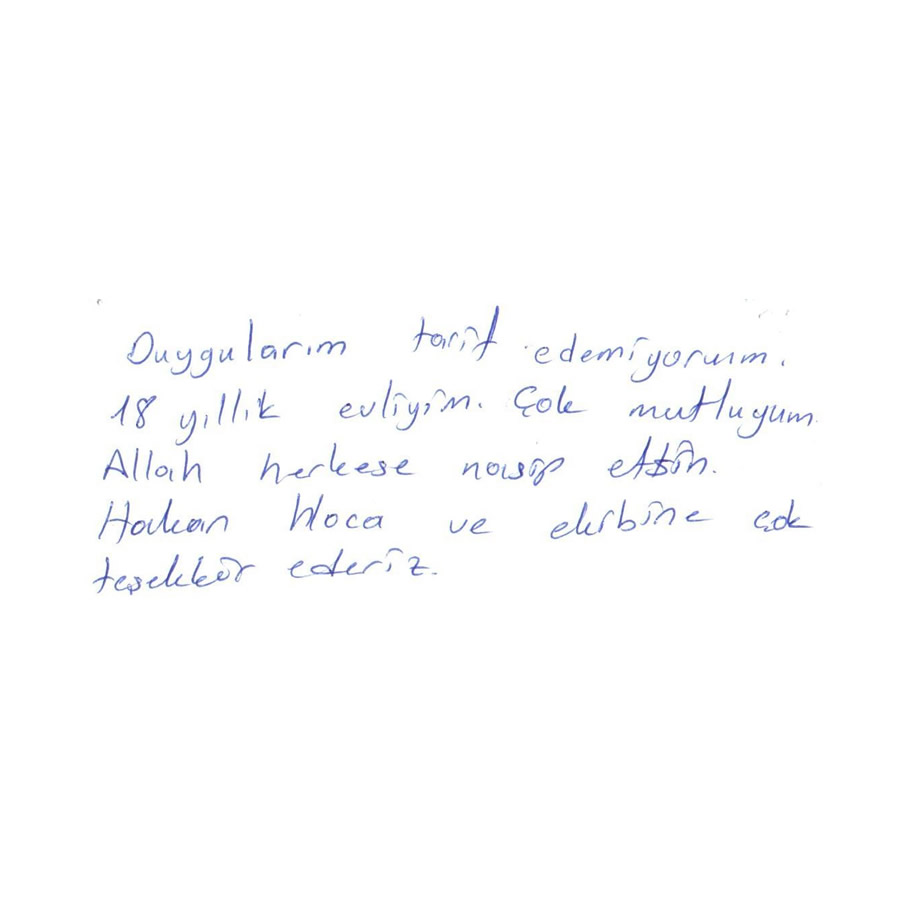 Duygularım tarif edemiyorum.
18 yıllık evliyim. Çok mutluyum.
Allah herkese nasip etsin.
Hakan Hoca ve ekibine çok
teşekkür ederiz.